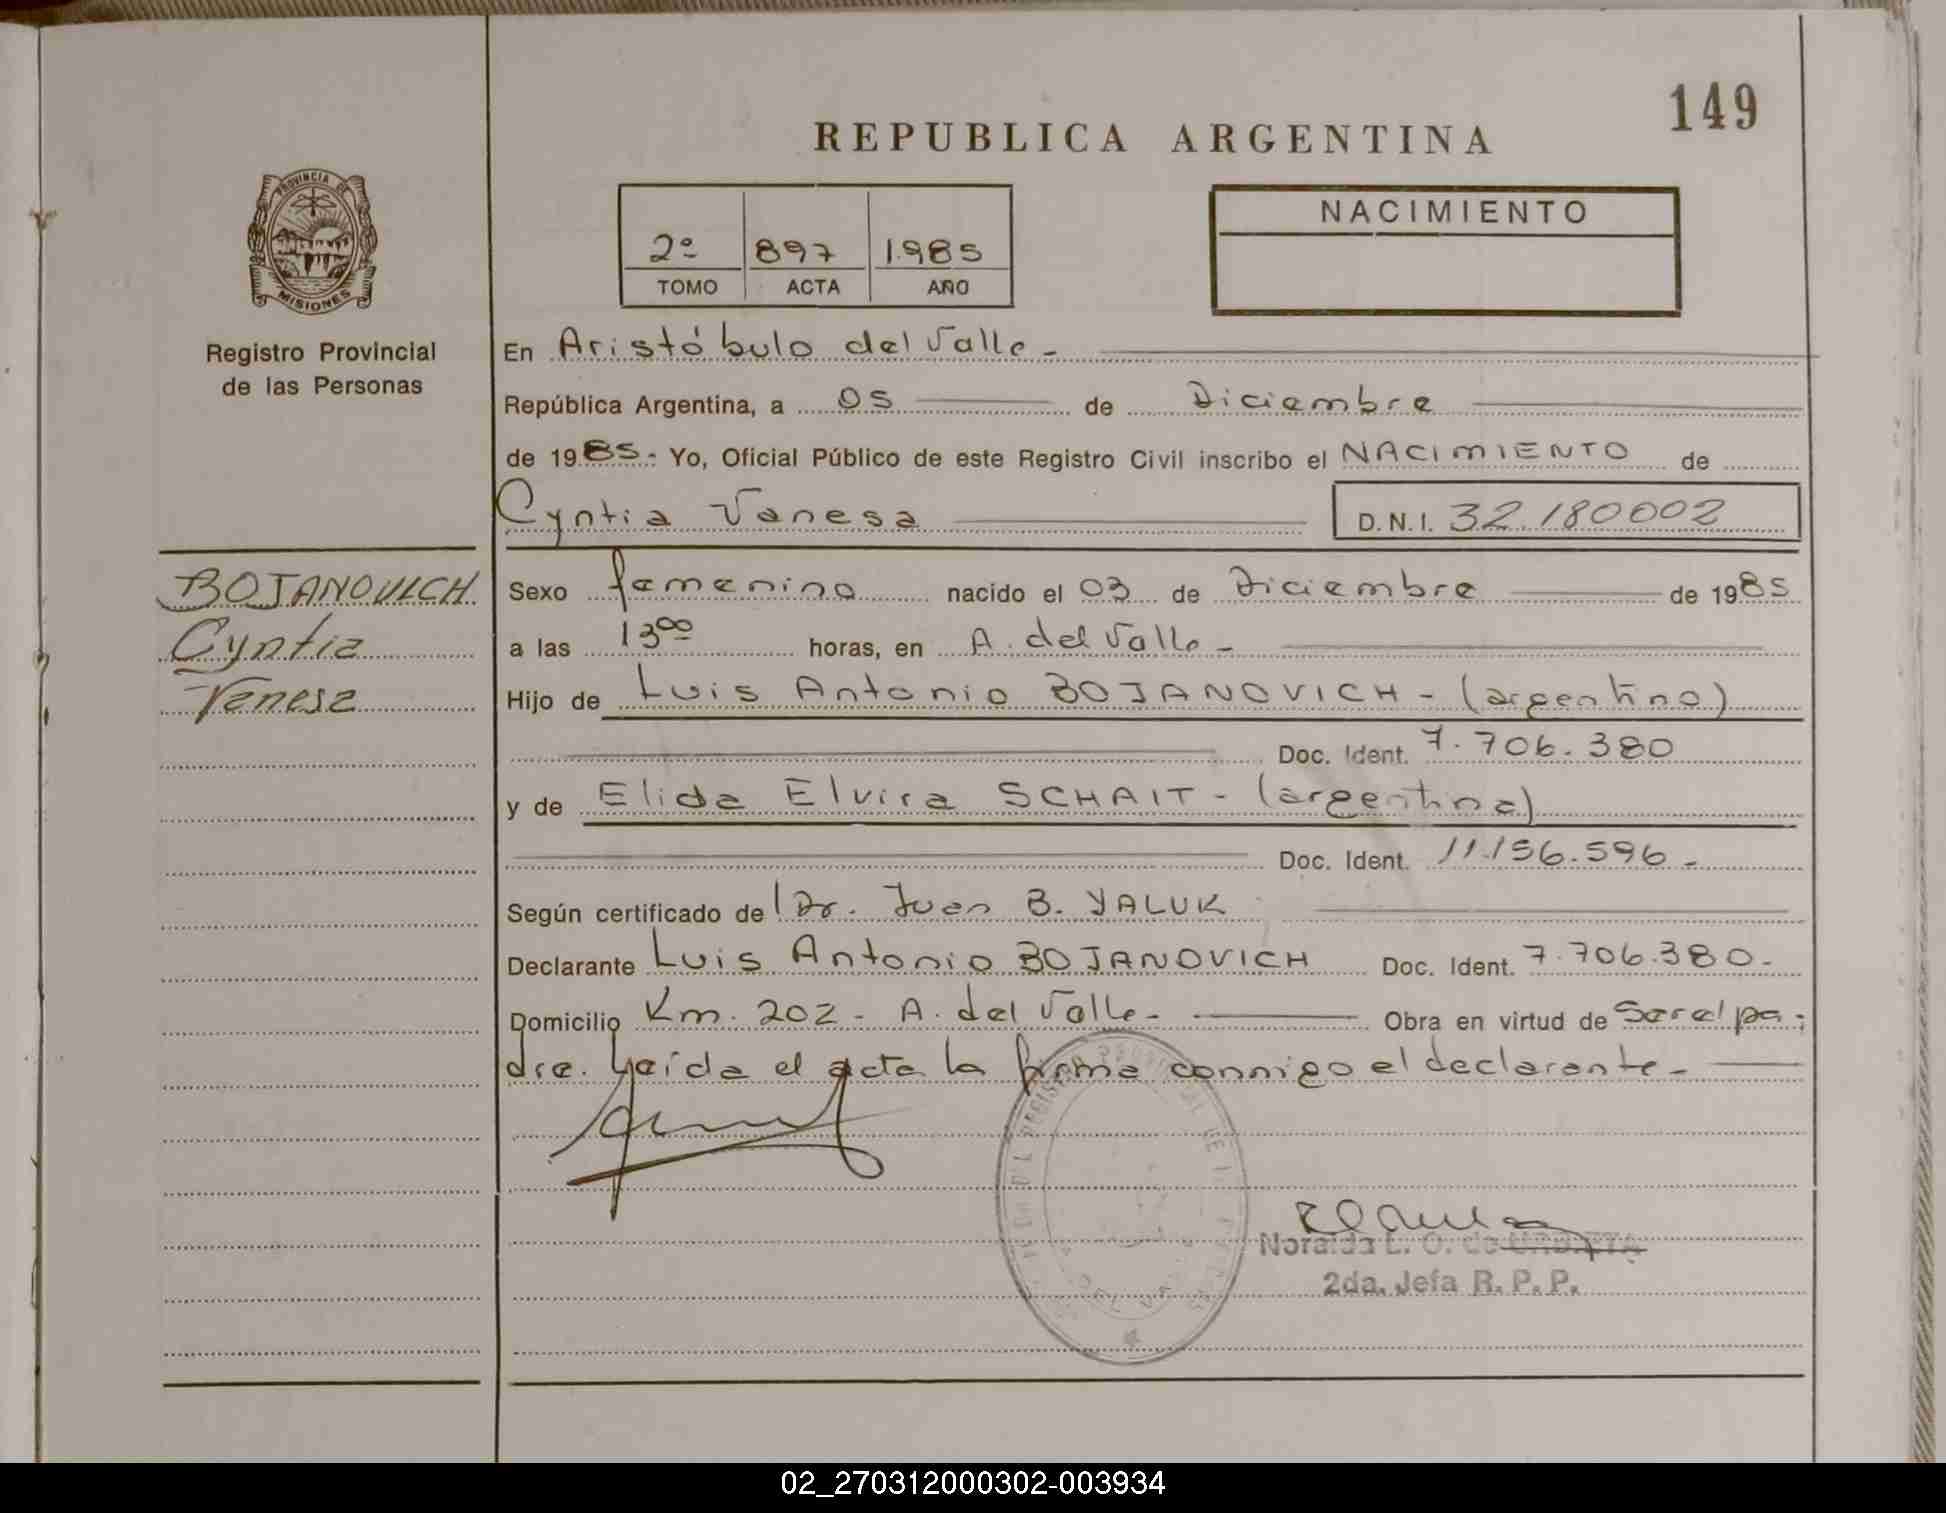 149
REPUBLICA ARGENTINA
PROVINCIA DE
MISIONES
Registro Provincial
de las Personas
2º 897 1.985
TOMO ACTA AÑO
NACIMIENTO
En Aristóbulo del Valle -
República Argentina, a 05 de Diciembre
de 1985.- Yo, Oficial Público de este Registro Civil inscribo el NACIMIENTO de
Cyntia Vanesa D.N.I. 32.180002
BOJANOVICH
Cyntia
Vanesa
Sexo femenino nacido el 03 de Diciembre de 1985
a las 13 00 horas, en A. del Valle -
Hijo de Luis Antonio BOJANOVICH - (argentino)
Doc. Ident. 7.706.380
y de Elida Elvira SCHAIT - (argentina)
Doc. Ident. 11.156.596 -
Según certificado de Dr. Juan B. YALUK
Declarante Luis Antonio BOJANOVICH Doc. Ident. 7.706.380.-
Domicilio Km. 202 - A. del Valle - Obra en virtud de Ser el pa-
dre. Leída el acta la firma conmigo el declarante -
Noraida L. O. de
2da. Jefa R. P. P.
02_270312000302-003934